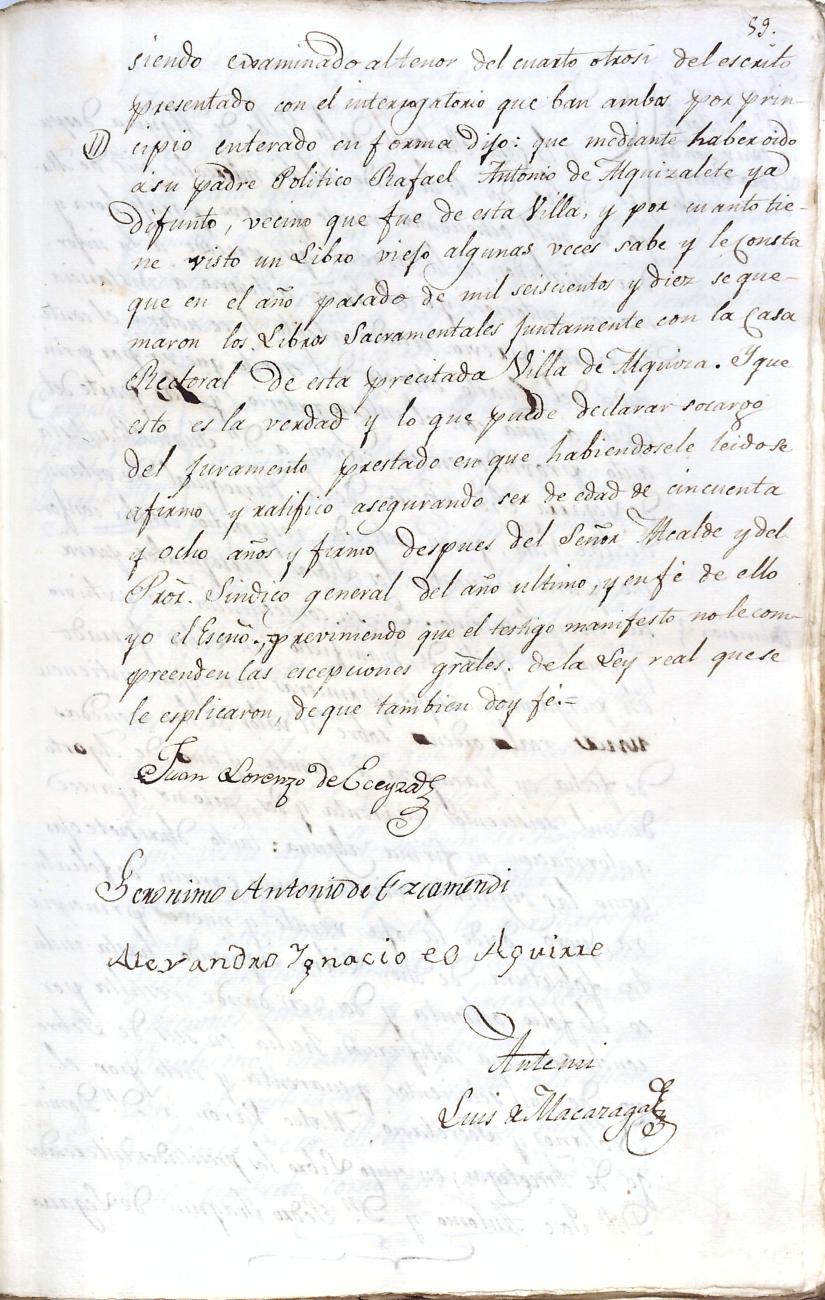 59.
siendo examinado al tenor del cuarto otrosi del escrito
presentado con el interrogatorio que ban ambos por prin-
cipio enterado en forma Dijo: que mediante haber oido
à su padre Politico Rafael Antonio de Alquizalete ya
difunto, vecino que fue de esta Villa, y por cuanto tie-
ne visto un Libro viejo algunas veces sabe y le Consta
que en el año pasado de mil seiscientos y diez se que-
maron los Libros Sacramentales juntamente con la Casa
Rectoral de esta precitada Villa de Alquiza. Y que
esto es la verdad y lo que puede declarar so cargo
del Juramento prestado en que habiendosele leido se
afirmo y ratifico asegurando ser de edad de cincuenta
y ocho años y firmo despues del Señor Alcalde y del
Pror. Sindico general del año ultimo, y en fé de ello
yo el Escno., previniendo que el testigo manifesto no le com-
preenden las escepciones grales. de la Ley real que se
le esplicaron, de que tambien doy fé =
Juan Lorenzo de Eceyza
Geronimo Antonio de
Alexandro Ygnacio de Aguirre
Ante mi
Luis de Macazaga